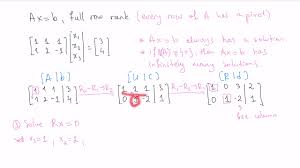 Ax=b, full row rank (every row of A has a pivot)
[1 1 1; 1 2 -1] [x₁; x₂; x₃] = [3; 4]
* Ax=b always has a solution
* if N(A) ≠ {0}, then Ax=b has
infinitely many solutions.
[A|b] [U|C] [R|d]
[1 1 1 | 3; 1 2 -1 | 4] R₂-R₁→R₂ [1 1 1 | 3; 0 1 -2 | 1] R₁-R₂→R₁ [1 0 3 | 2; 0 1 -2 | 1]
free column
① Solve Rx=0
set x₃=1,